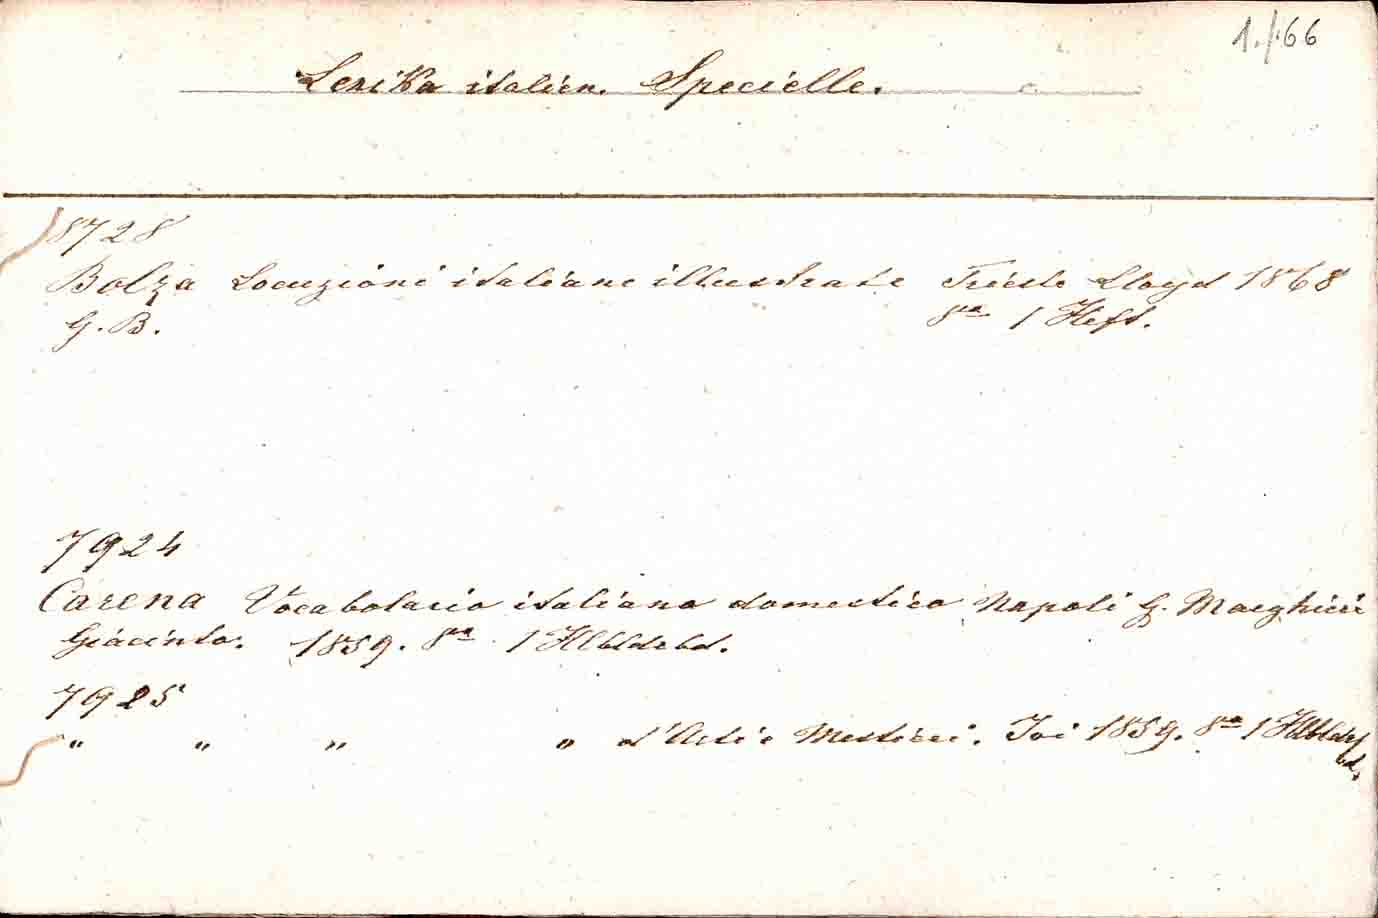 1./.66
Lexika italien. Specielle.
8728
Bolza Locuzioni italiane illustrate Trieste Lloyd 1868
G. B. 8va 1 Heft.
7924
Carena Vocabolario italiano domestico Napoli G. Marghieri
Giacinto. 1859. 8va 1 Hlbldrbd.
7925
" " " " d'Arti e Mestieri. Ivi 1859. 8va 1 Hlbldr
bd.